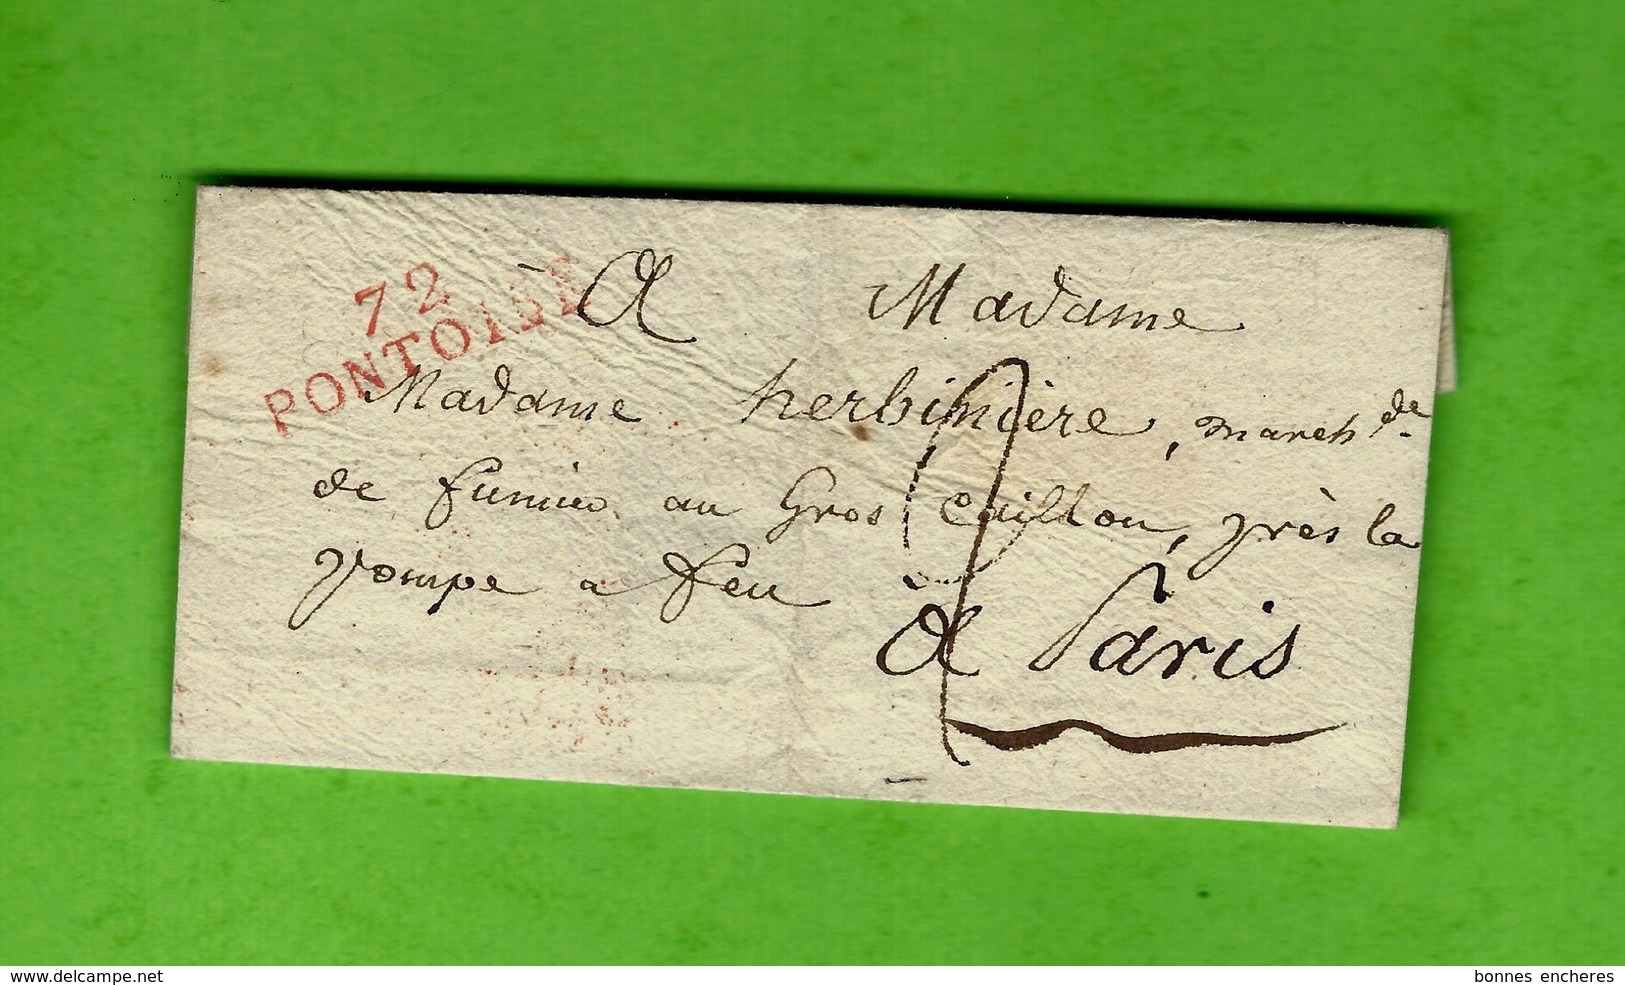 72
PONTOISE
A Madame
Madame herbinière, march.de
de fumier au Gros Caillou, près la
pompe a feu
A Paris
2
www.delcampe.net
bonnes encheres